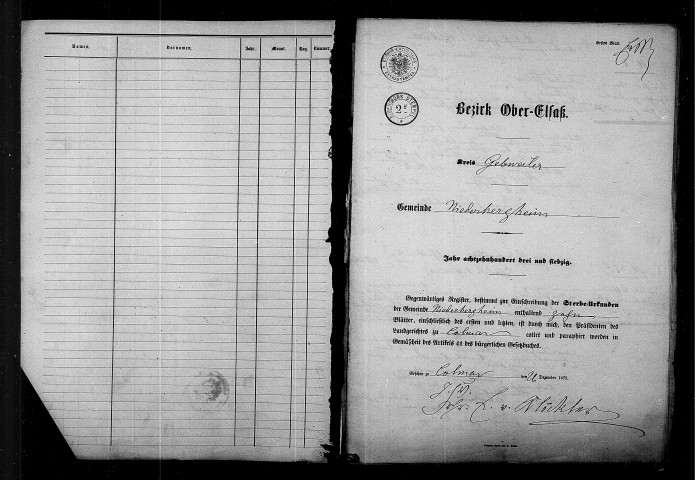 Namen. Vornamen. Jahr. Monat. Tag. Nummer.
Erstes Blatt.
Bezirk Ober-Elsaß.
Kreis Gebweiler
Gemeinde Niederhergheim
Jahr achtzehnhundert drei und siebzig.
Gegenwärtiges Register, bestimmt zur Einschreibung der Sterbe-Urkunden
der Gemeinde Niederhergheim enthaltend zehn
Blätter, einschließlich des ersten und letzten, ist durch mich, den Präsidenten des
Landgerichtes zu Colmar cotirt und paraphirt worden in
Gemäßheit des Artikels 41 des bürgerlichen Gesetzbuches.
Geschehen zu Colmar den Dezember 1872.